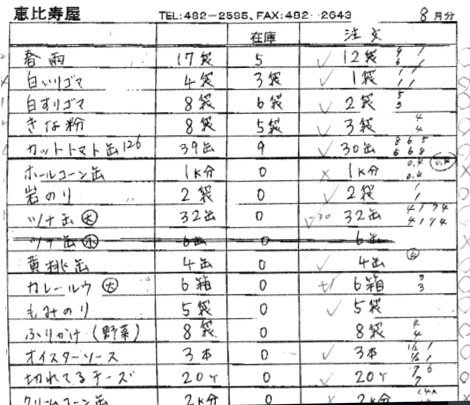 恵比寿屋 TEL:482-2595, FAX:482-2643 8月分
在庫 注文
春雨 17袋 5 12袋
白いりゴマ 4袋 3袋 1袋
白すりゴマ 8袋 6袋 2袋
きな粉 8袋 5袋 3袋
カットトマト缶 39缶 9 30缶
ホールコーン缶 1K分 0 1K分
岩のり 2袋 0 2袋
ツナ缶 大 32缶 0 32缶
ツナ缶 小 6缶 0 6缶
黄桃缶 4缶 0 4缶
カレールウ 大 6箱 0 6箱
もみのり 5袋 0 5袋
ふりかけ(野菜) 8袋 0 8袋
オイスターソース 3本 0 3本
切れてるチーズ 20ケ 0 20ケ
クリームコーン缶 2K分 0 2K分